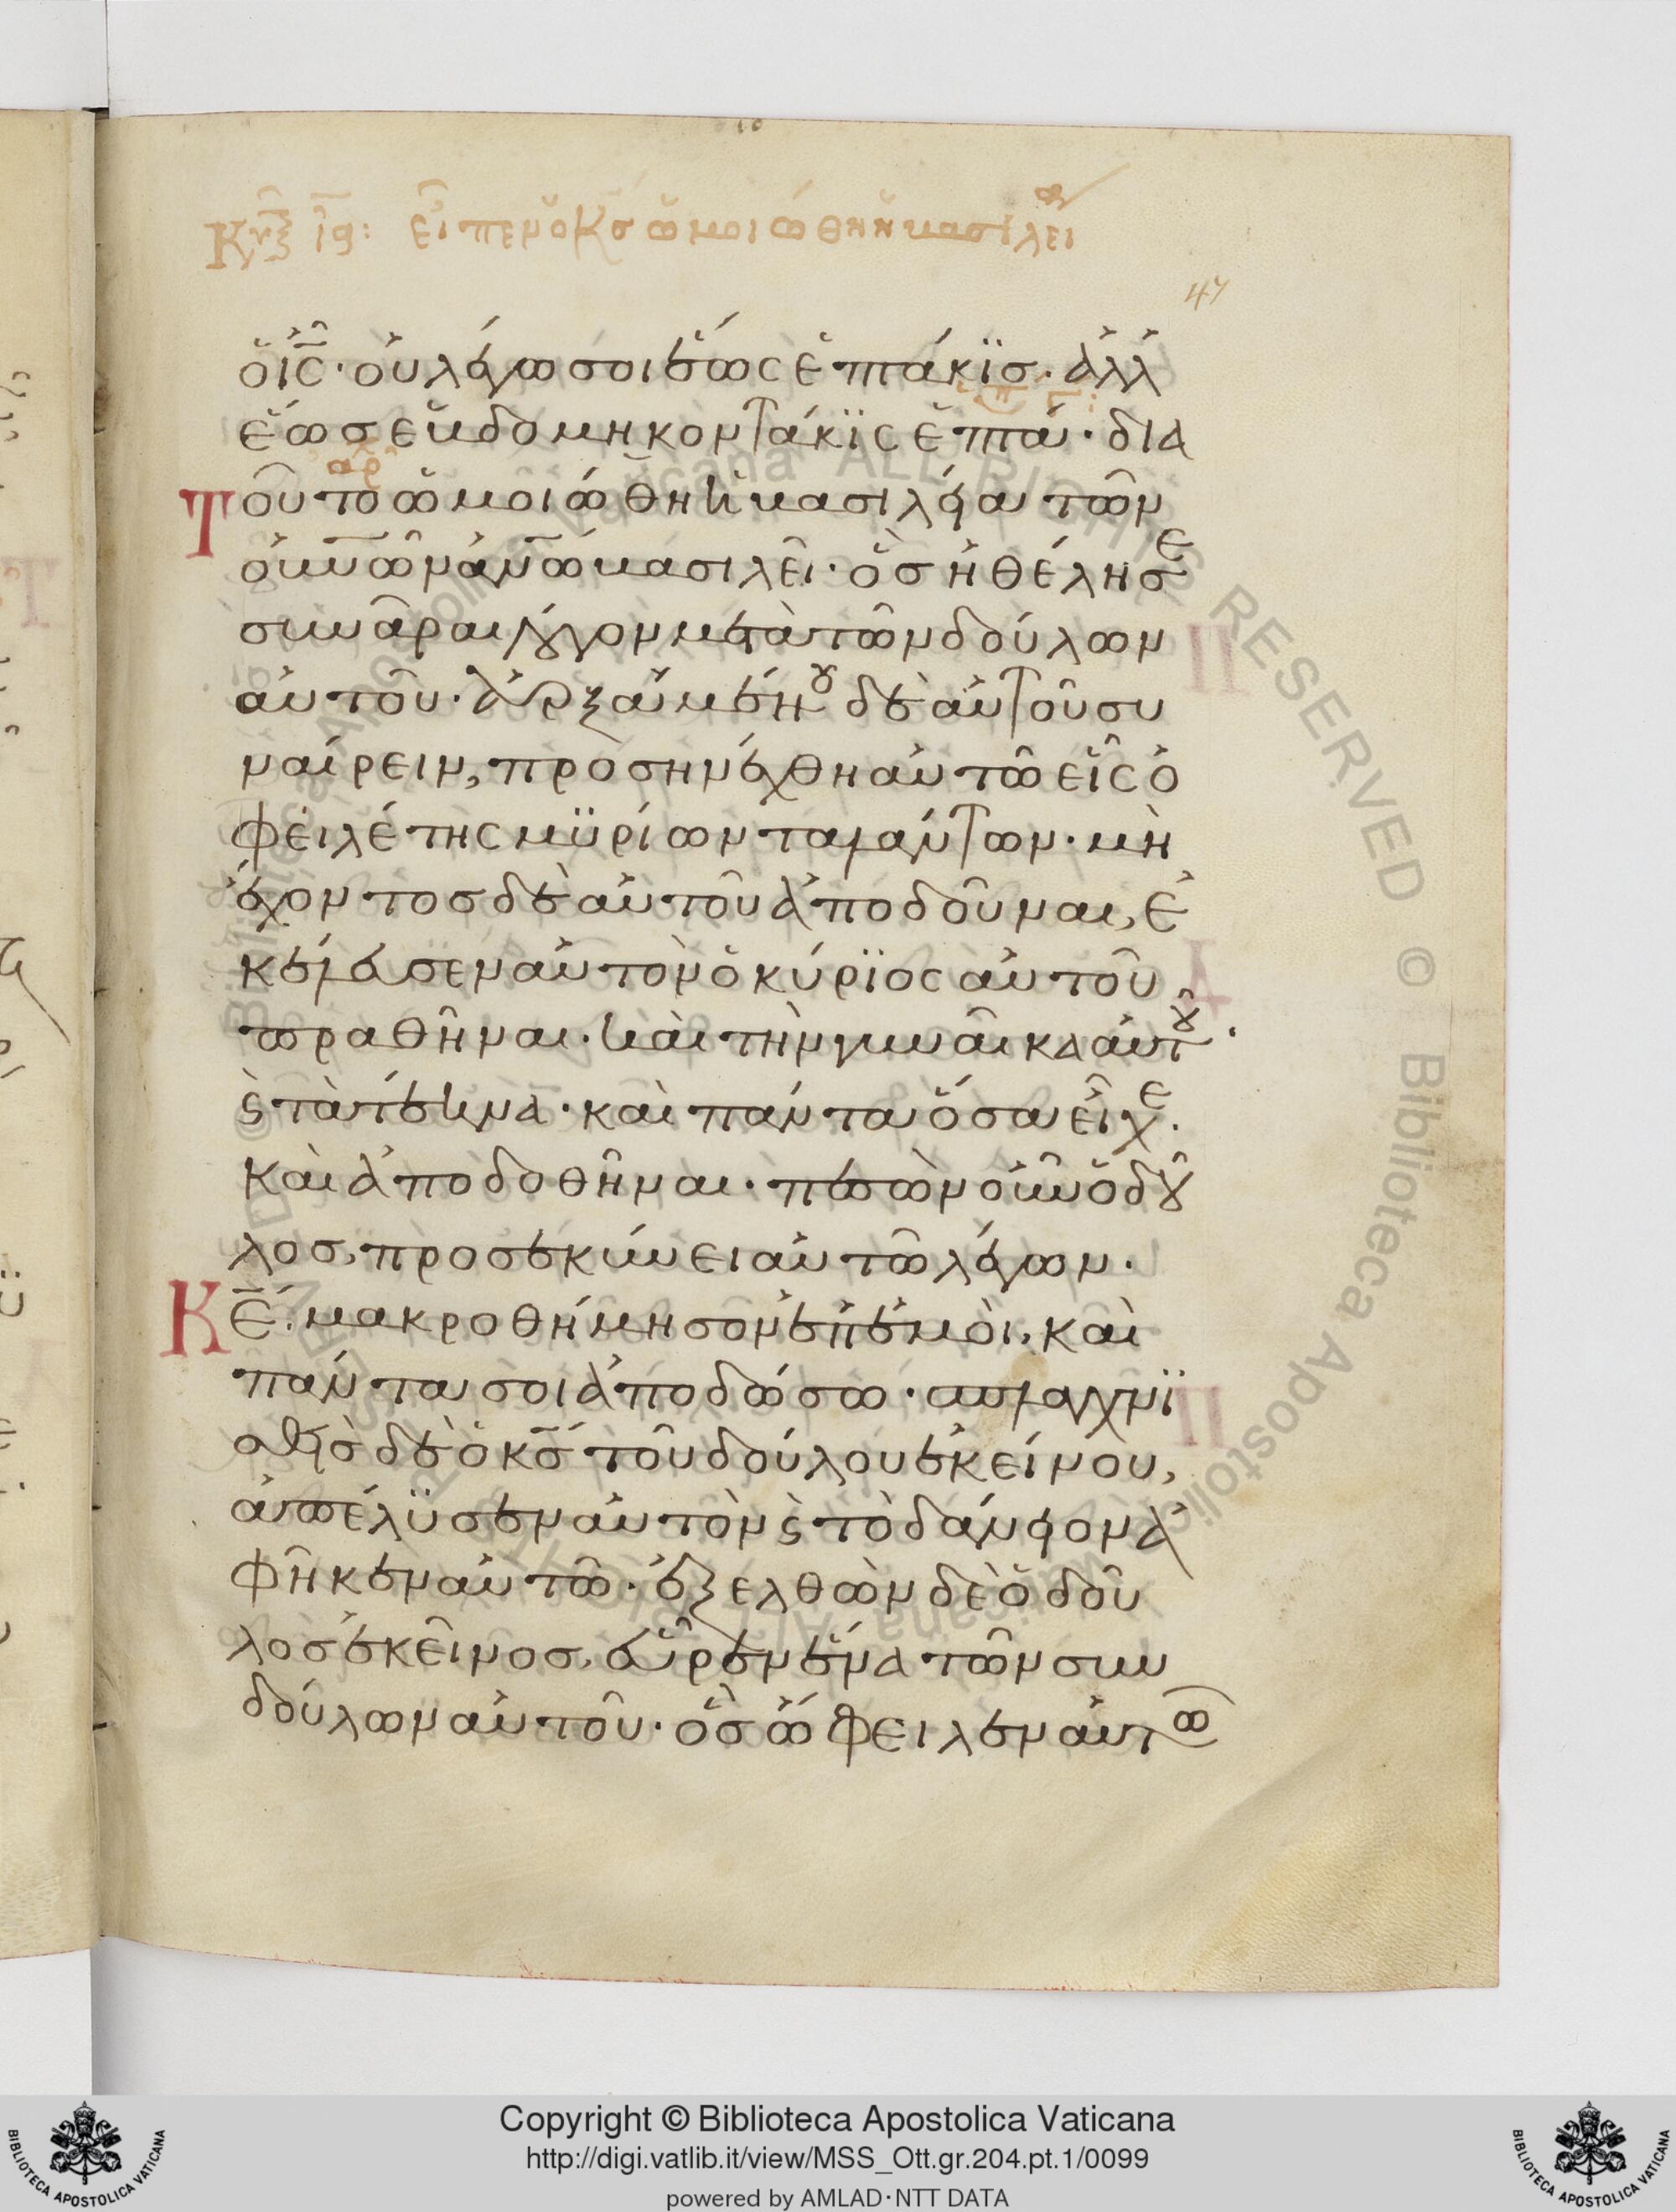 Κυ ιϛ: εἶπεν ὁ κς ὡμοιώθη ἡ βασιλεί
47
ὁ ις· οὐ λέγω σοι ἕως ἑπτάκϊς· ἀλλ
ἕως ἑβδομηκοντάκϊς ἑπτά· δια
τοῦτο ὡμοιώθη ἡ βασιλεία τῶν
αρ
οὐνῶν ἀνῶ βασιλεῖ· ὃς ἠθέλησε
συνᾶραι λόγον μετὰ τῶν δούλων
αὐτοῦ· ἀρξαμένου δὲ αὐτοῦ συ
ναίρειν, προσηνέχθη αὐτῶ εἷς ὀ
φειλέτης μϋρίων ταλάντων· μὴ
ἔχοντος δὲ αὐτοῦ ἀποδοῦναι, ἐ
κέλευσεν αὐτὸν ὁ κύρϊος αὐτοῦ
πραθῆναι· καὶ τὴν γυναῖκα αὐτοῦ·
ϗ τὰ τέκνα· καὶ πάντα ὅσα εἶχε·
καὶ ἀποδοθῆναι· πεσὼν οὖν ὁ δοῦ
λος, προσεκύνει αὐτῶ λέγων·
Κε· μακροθύμησον ἐπ' ἐμοὶ, καὶ
πάντα σοι ἀποδώσω· σπλαγχνϊ
σθεὶς δὲ ὁ κς τοῦ δούλου ἐκείνου,
ἀπέλϋσεν αὐτὸν ϗ τὸ δάνειον ἀ
φῆκεν αὐτῶ· ἐξελθὼν δὲ ὁ δοῦ
λος ἐκεῖνος, εὗρεν ἕνα τῶν συν
δούλων αὐτοῦ· ὃς ὤφειλεν αὐτῶ
Copyright © Biblioteca Apostolica Vaticana
http://digi.vatlib.it/view/MSS_Ott.gr.204.pt.1/0099
powered by AMLAD·NTT DATA
BIBLIOTECA APOSTOLICA VATICANA
BIBLIOTECA APOSTOLICA VATICANA